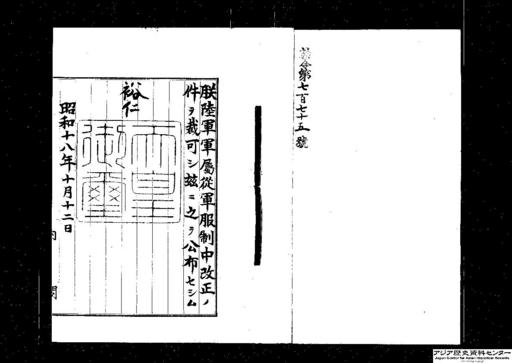 勅令第七百七十五號
朕陸軍軍屬從軍服制中改正ノ
件ヲ裁可シ茲ニ之ヲ公布セシム
裕仁
天皇
御璽
昭和十八年十月十二日
内閣
アジア歴史資料センター
Japan Center for Asian Historical Records